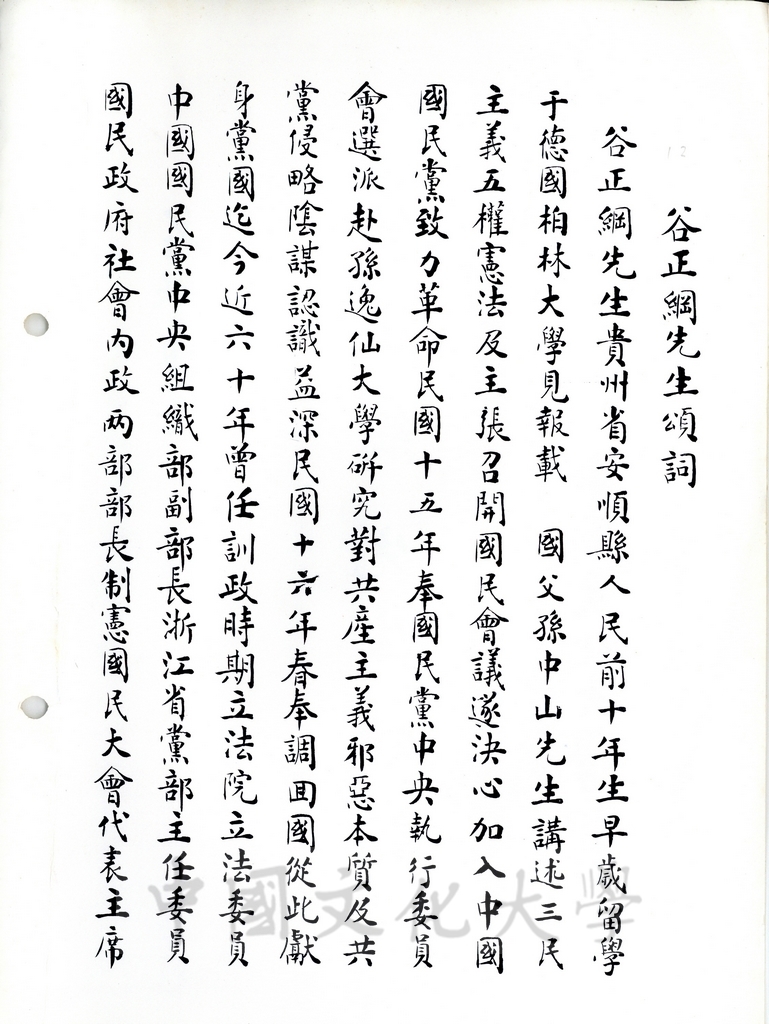 谷正綱先生頌詞
谷正綱先生貴州省安順縣人民前十年生早歲留學
于德國柏林大學見報載　國父孫中山先生講述三民
主義五權憲法及主張召開國民會議遂決心加入中國
國民黨致力革命民國十五年奉國民黨中央執行委員
會選派赴孫逸仙大學研究對共產主義邪惡本質及共
黨侵略陰謀認識益深民國十六年春奉調回國從此獻
身黨國迄今近六十年曾任訓政時期立法院立法委員
中國國民黨中央組織部副部長浙江省黨部主任委員
國民政府社會內政两部部長制憲國民大會代表主席
中國文化大學